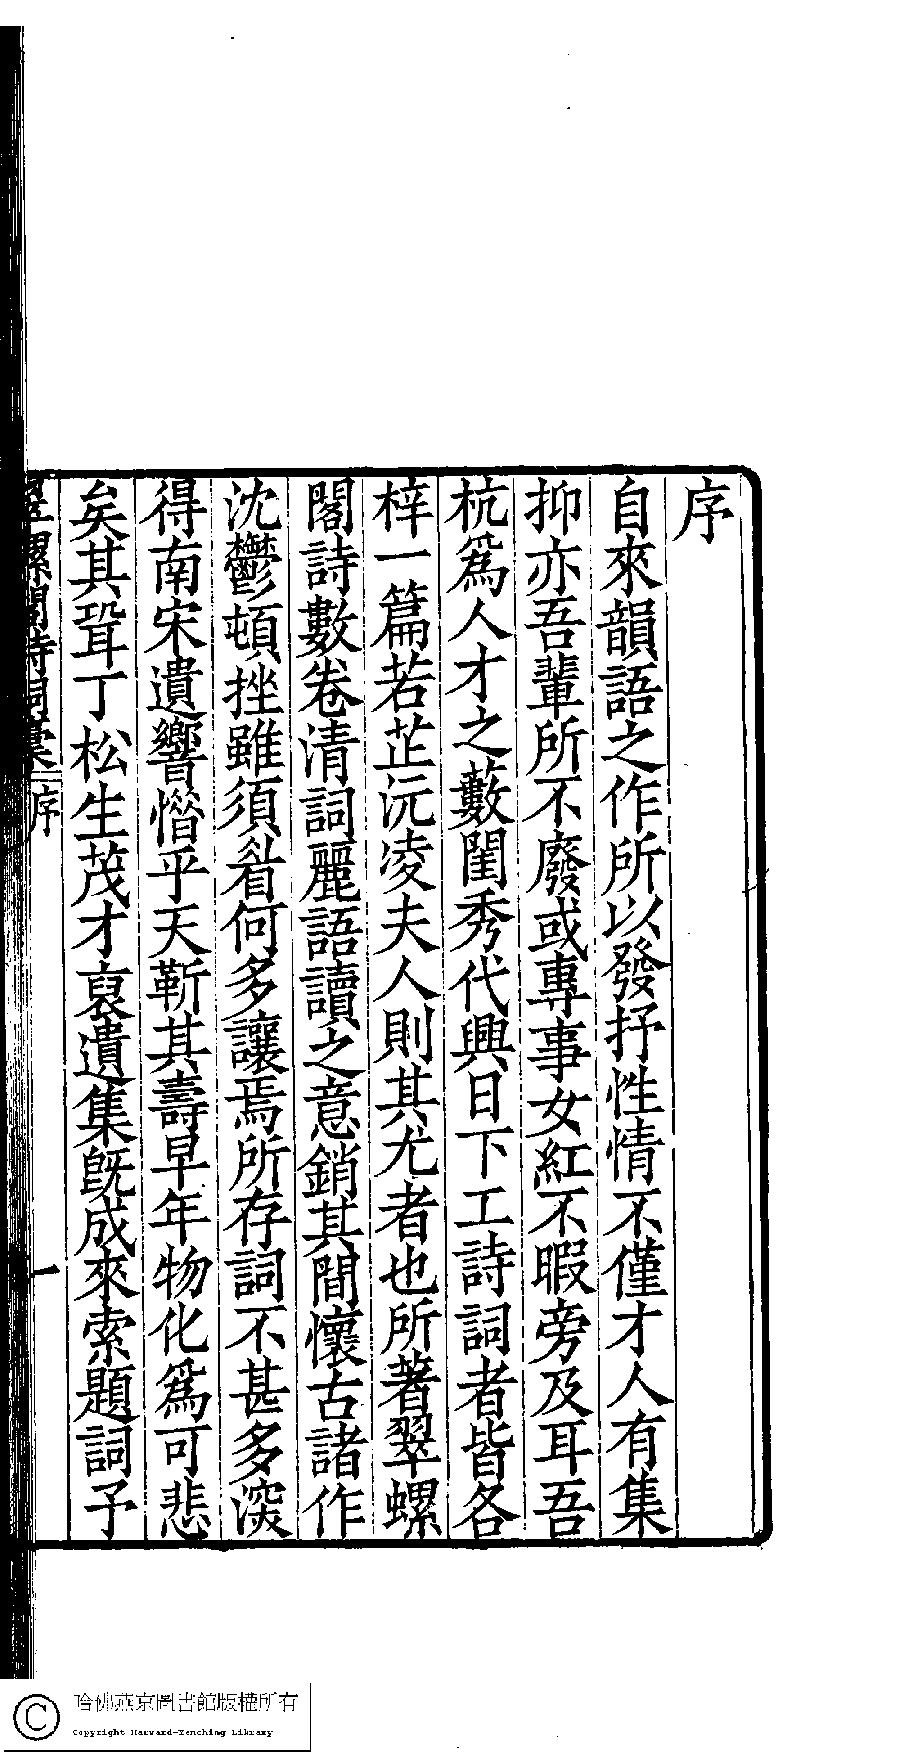 序
自來韻語之作所以發抒性情不僅才人有集
抑亦吾輩所不廢或專事女紅不暇旁及耳吾
杭爲人才之藪閨秀代興日下工詩詞者皆各
梓一篇若芷沅凌夫人則其尤者也所著翠螺
閣詩數卷清詞麗語讀之意銷其間懷古諸作
沈鬱頓挫雖須眉何多讓焉所存詞不甚多深
得南宋遺響惜乎天靳其壽早年物化爲可悲
矣其聟丁松生茂才裒遺集旣成來索題詞予
翠螺閣詩詞稾 序 一
哈佛燕京圖書館版權所有
Copyright Harvard-Yenching Library